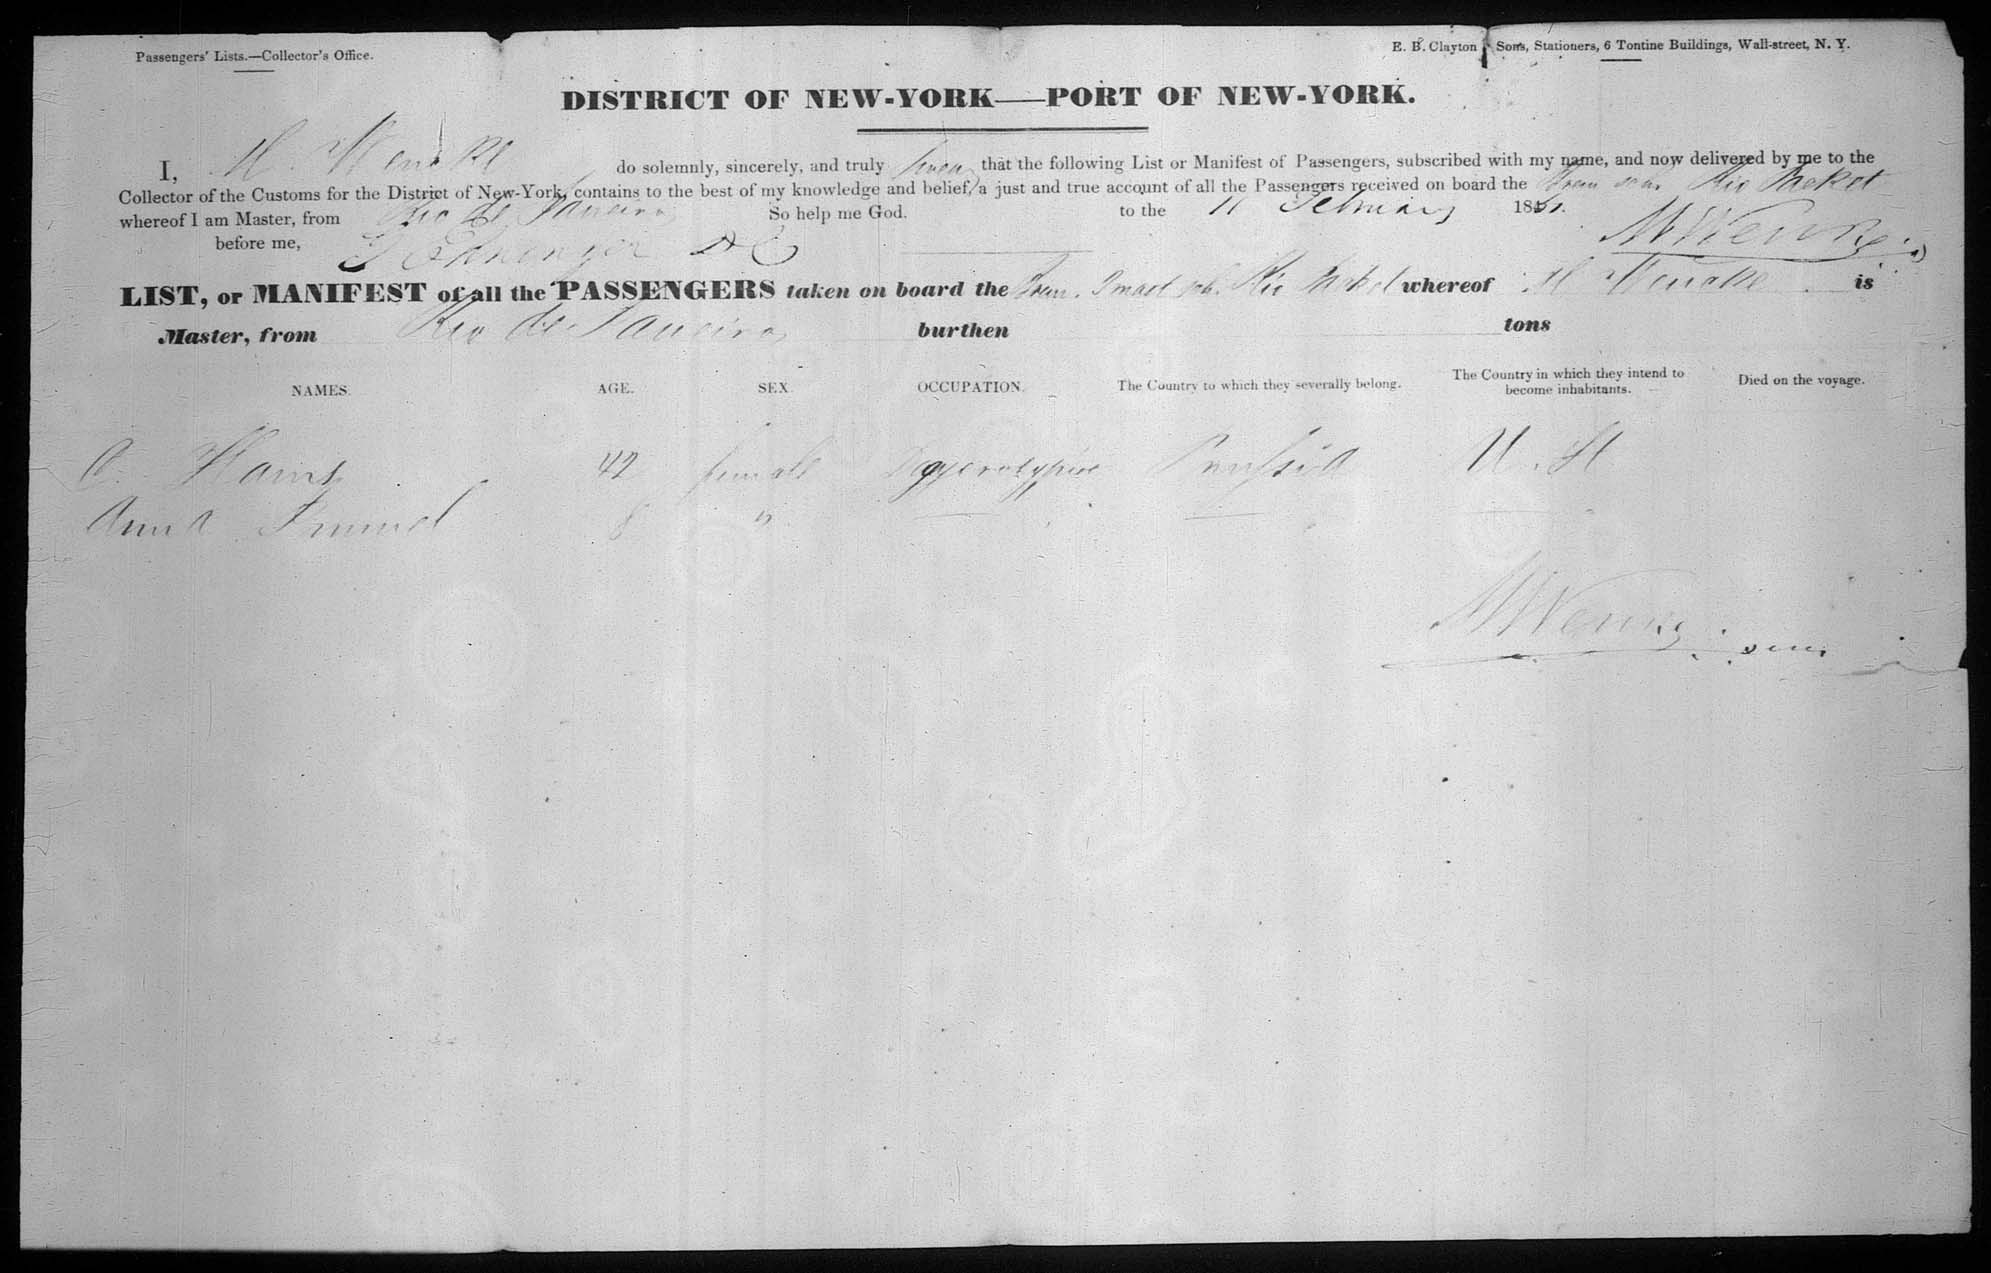 Passengers' Lists.—Collector's Office.
E. B. Clayton & Sons, Stationers, 6 Tontine Buildings, Wall-street, N. Y.
DISTRICT OF NEW-YORK—PORT OF NEW-YORK.
I, M. Wencke do solemnly, sincerely, and truly swear that the following List or Manifest of Passengers, subscribed with my name, and now delivered by me to the
Collector of the Customs for the District of New-York, contains to the best of my knowledge and belief, a just and true account of all the Passengers received on board the Brem sch. Rio Packet
whereof I am Master, from Rio de Janeiro So help me God. to the 11 February 1851.
before me, M Wencke
LIST, or MANIFEST of all the PASSENGERS taken on board the Brem. 3 mast sch. Rio Packet whereof M Wencke is
Master, from Rio de Janeiro burthen tons
NAMES. AGE. SEX. OCCUPATION. The Country to which they severally belong. The Country in which they intend to become inhabitants. Died on the voyage.
C. 42 female Prussia U. St
Anna 8 "
M Wencke